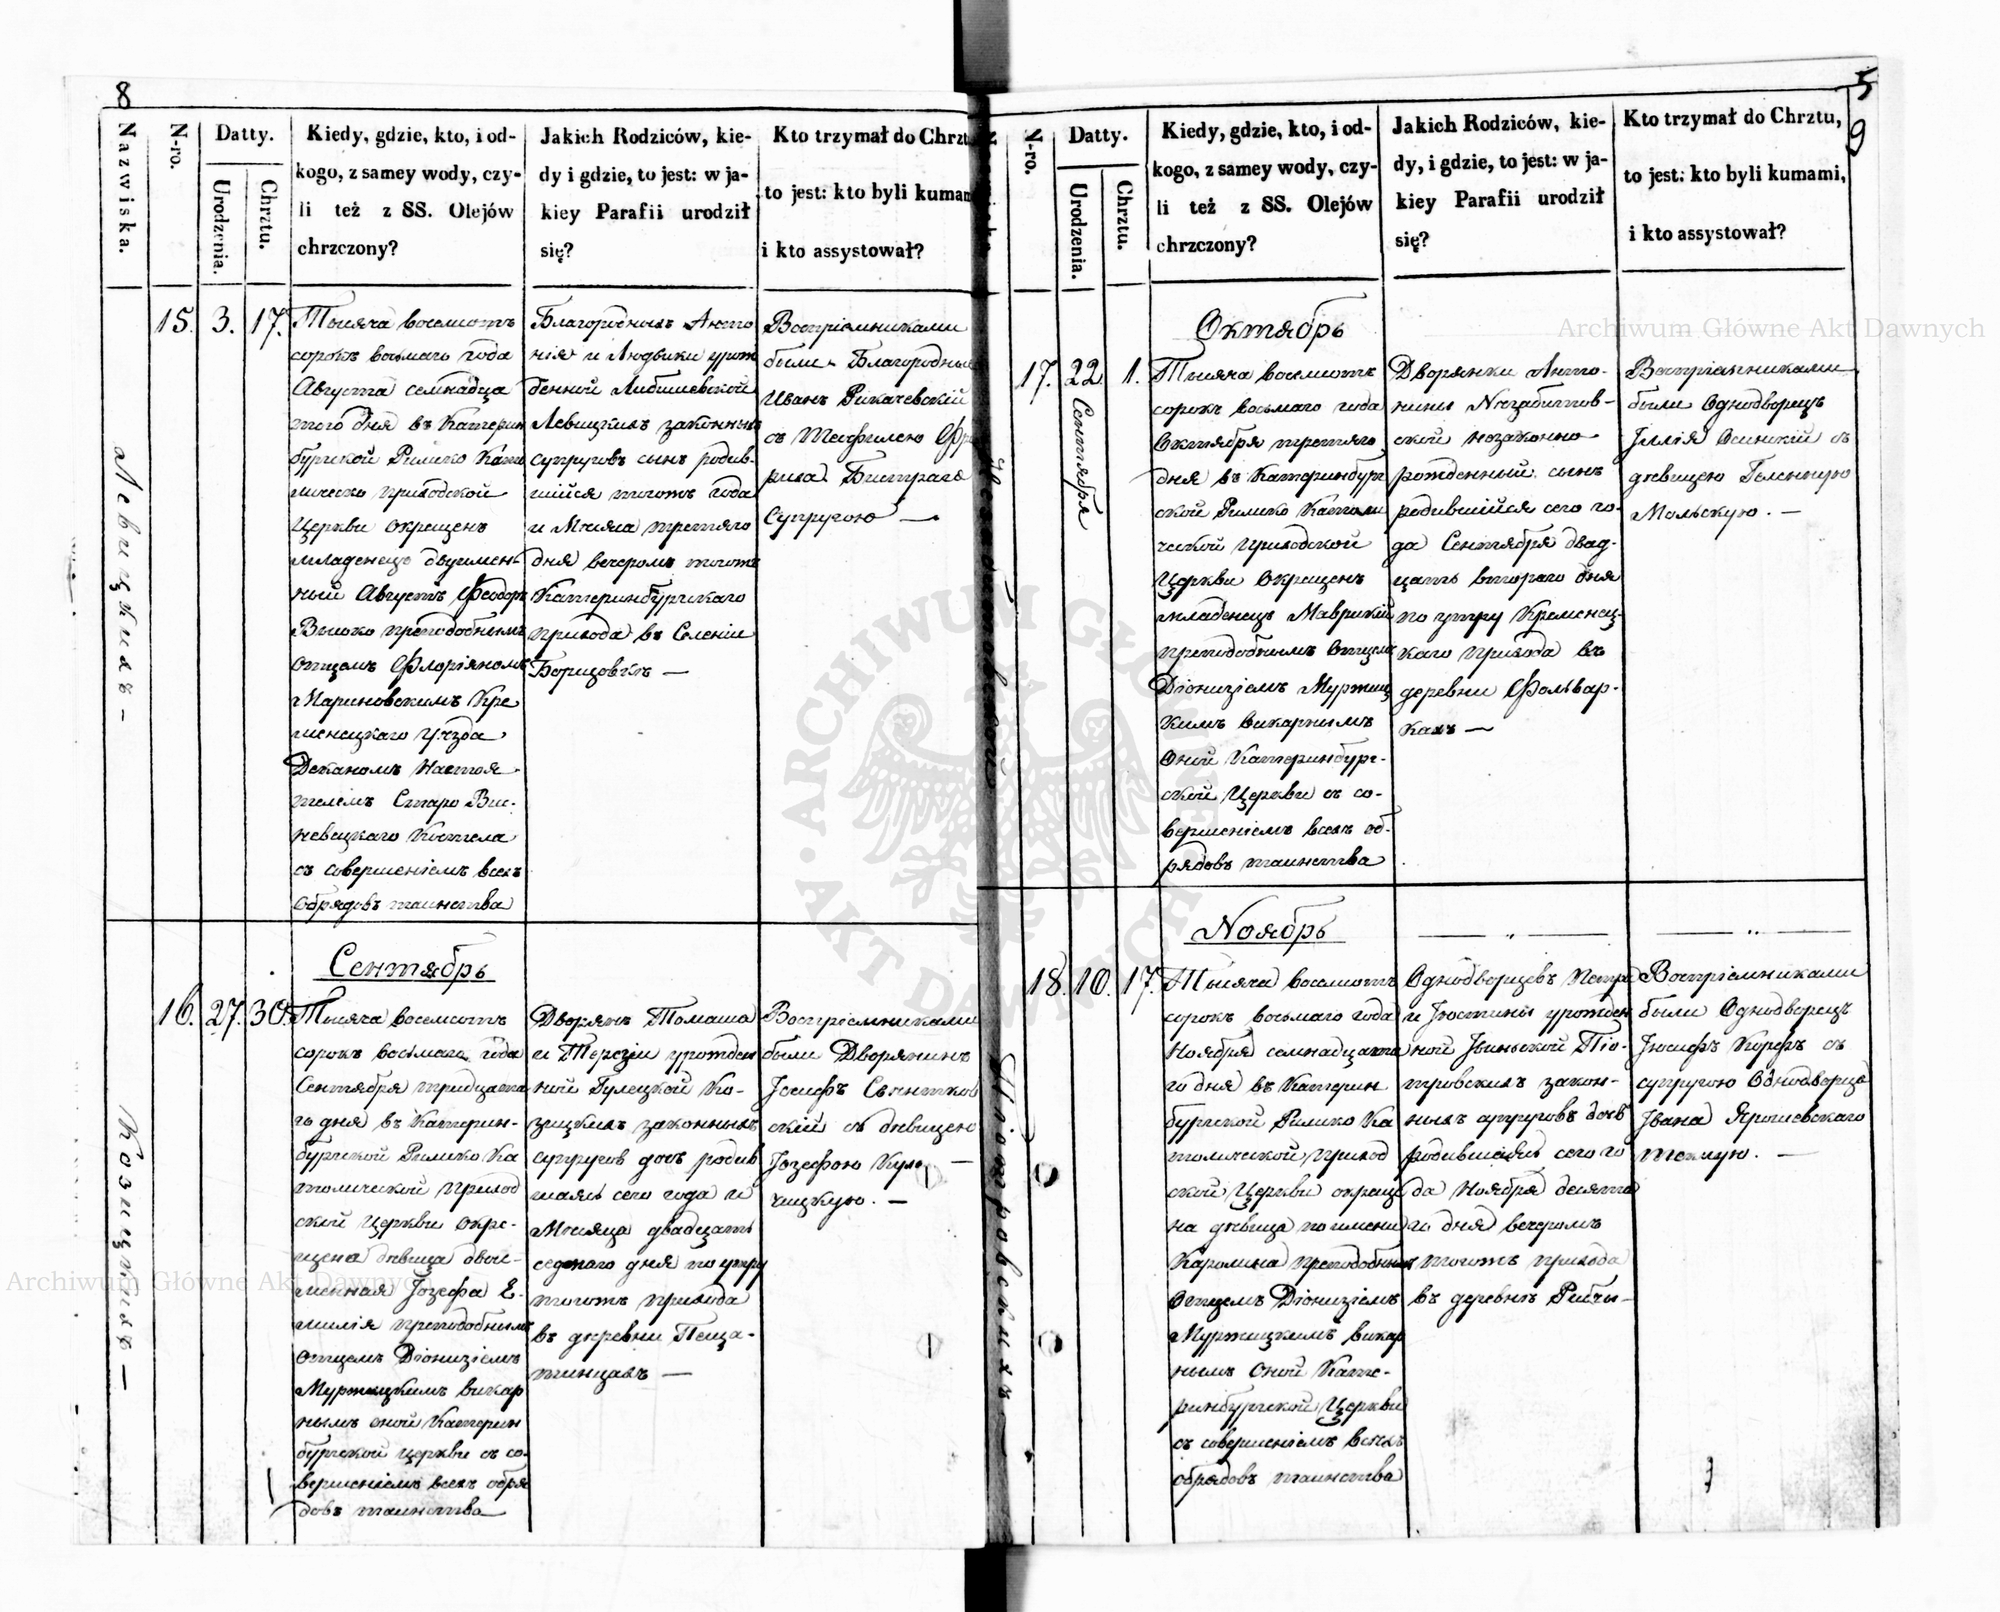 8
Nazwiska.
N-ro.
Datty.
Urodzenia.
Chrztu.
Kiedy, gdzie, kto, i od-
kogo, z samey wody, czy-
li też z SS. Olejów
chrzczony?
Jakich Rodziców, kie-
dy i gdzie, to jest: w ja-
kiey Parafii urodził
się?
Kto trzymał do Chrztu
to jest: kto byli kumam
i kto assystował?
Левицкихъ –
15. 3. 17.
Тысяча восемсотъ
сорокъ восьмаго года
Августа семнадца
того дня въ Катерин
бургской Римско Като
лическо приходской
Церкви окрещенъ
младенецъ двуимен-
ный Августъ Феодоръ
Высоко преподобнымъ
Отцемъ Флоріяномъ
Мариновскимъ Кре
менецкаго Уѣзда
Деканомъ Настоя-
телемъ Старо Виш-
невецкаго Костела
съ совершеніемъ всехъ
Обрядовъ таинства
Благородныхъ Анто
нія и Людвики урож
денной Либишевской
Левицкихъ законныхъ
супруговъ сынъ родив-
шійся тогожъ года
и Мѣсяца третяго
дня вечеромъ тогожъ
Катеринбургскаго
прихода въ Селеніи
Борщовкѣ —
Воспріемниками
были Благородные
Иванъ
съ Теофилею
Супругою —
Козицкихъ —
Сентябрь
16. 27. 30.
Тысяча восемсотъ
сорокъ восьмаго года
Сентября тридцата
го дня въ Катерин-
бургской Римско Ка
толической приход
ской Церкви окре-
щена дѣвица двои-
менная Іозефа Е-
милія преподобнымъ
Отцемъ Діонизіемъ
Муржицкимъ викар
нымъ оной Катерин
бургской Церкви съ со-
вершеніемъ всехъ обря
довъ таинства
Дворянъ Томаша
и Терезіи урожден
ной Гулецкой Ко-
зицкихъ законныхъ
супругов дочь родив
шаясь сего года и
Мѣсяца двадцать
седмаго дня по утру
тогожъ прихода
въ деревни Пеща-
тинцахъ —
Воспріемниками
были Дворянинъ
Іосифъ Свентков
ский съ дѣвицею
Іозефою Куль
чицкую. —
5
9
N-ro.
Datty.
Urodzenia.
Chrztu.
Kiedy, gdzie, kto, i od-
kogo, z samey wody, czy-
li też z SS. Olejów
chrzczony?
Jakich Rodziców, kie-
dy, i gdzie, to jest: w ja-
kiey Parafii urodził
się?
Kto trzymał do Chrztu,
to jest: kto byli kumami,
i kto assystował?
Октябрь
17. 22 1.
Сентября
Тысяча восемсотъ
сорокъ восьмаго года
Октября третяго
дня въ Катеринбург
ской Римско Католи
ческой приходской
Церкви Окрещенъ
младенецъ Маврикій
преподобнымъ Отцемъ
Діонизіемъ Муржиц
кимъ викарнымъ
Оной Катеринбург-
ской Церкви съ со-
вершеніемъ всехъ об-
рядовъ таинства
Дворянки Анто-
нины Незабитов-
ской незаконно
рожденный сынъ
родившійся сего го-
да Сентября двад-
цать втораго дня
по утру Кременец-
каго прихода въ
деревни Фольвар-
кахъ —
Воспріемниками
были Однодворецъ
Іллія Осинскій съ
дѣвицею
Мольскую. —
Піотровскихъ —
Ноябрь
18. 10. 17.
Тысяча восемсотъ
сорокъ восьмаго года
Ноября семнадцата
го дня въ Катерин
бургской Римско Ка
толической приход
ской Церкви окреще
на дѣвица по имени
Каролина преподобнымъ
Отцемъ Діонизіемъ
Муржицкимъ викар
нымъ Оной Кате-
ринбургской Церкви
съ совершеніемъ всехъ
обрядовъ таинства
Однодворцевъ Петра
и Юстины урожден
ной Піо-
тровскихъ закон-
ныхъ супруговъ дочь
родившаясь сего го
да Ноября десята
го дня вечеромъ
тогожъ прихода
въ деревнѣ
Воспріемниками
были Однодворецъ
Іосифъ съ
супругою Однодворца
Івана Ярошевскаго
Теклую. —
Archiwum Główne Akt Dawnych
Archiwum Główne Akt Dawnych
ARCHIWUM GŁÓWNE AKT DAWNYCH